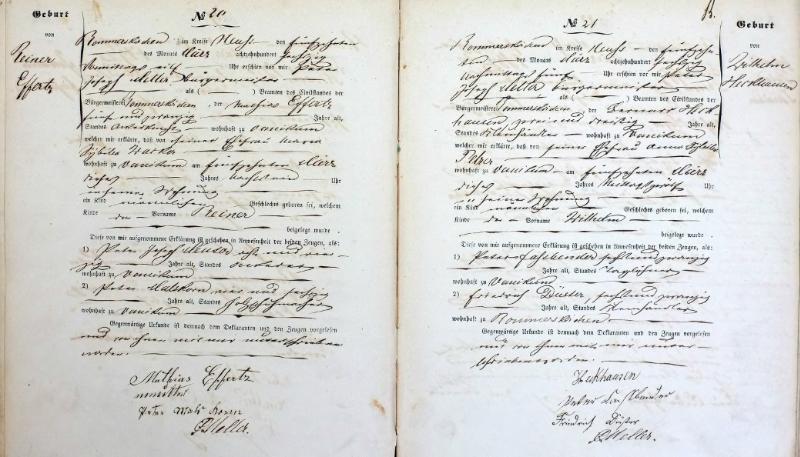 Geburt
von
Reiner
Effertz
№ 20
Rommerskirchen im Kreise Neuss den fünfzehnten
des Monats März achtzehnhundert sechzig
Vormittags elf Uhr erschien vor mir Peter
Joseph Meller Bürgermeister
als ( ) Beamten des Civilstandes der
Bürgermeisterei Rommerskirchen der Mathias Effertz
fünf und zwanzig Jahre alt,
Standes wohnhaft zu Vanikum
welcher mir erklärte, daß von seiner Ehefrau Maria
Sybilla
wohnhaft zu Vanikum am fünfzehnten März
dieses Jahres Uhr
in seiner Wohnung
ein Kind männlichen Geschlechts geboren sei, welchem
Kinde der Vorname Reiner
beigelegt wurde.
Diese von mir aufgenommene Erklärung ist geschehen in Anwesenheit der beiden Zeugen, als:
1) Peter Joseph acht und vier-
zig Jahre alt, Standes
wohnhaft zu Vanikum
2) Peter vier und sechzig
Jahre alt, Standes
wohnhaft zu Vanikum
Gegenwärtige Urkunde ist demnach dem Deklaranten und den Zeugen vorgelesen
und von ihnen mir unterschrieben
worden.
Mathias Effertz
Peter
PMeller.
№ 21
Geburt
von
Wilhelm
Heckhausen
Rommerskirchen im Kreise Neuss den fünfzehn
ten des Monats März achtzehnhundert sechzig
Nachmittags fünf Uhr erschien vor mir Peter
Joseph Meller Bürgermeister
als ( ) Beamten des Civilstandes der
Bürgermeisterei Rommerskirchen der Heck
hausen, zwei und dreißig Jahre alt,
Standes wohnhaft zu Vanikum
welcher mir erklärte, daß von seiner Ehefrau Anna
wohnhaft zu Vanikum am fünfzehnten März
dieses Jahres Mittags zwölf Uhr
in seiner Wohnung
ein Kind männlichen Geschlechts geboren sei, welchem
Kinde der Vorname Wilhelm
beigelegt wurde.
Diese von mir aufgenommene Erklärung ist geschehen in Anwesenheit der beiden Zeugen, als:
1) Peter sechs und zwanzig
Jahre alt, Standes Taglöhner
wohnhaft zu Vanikum
2) Friedrich Düster, sechs und zwanzig
Jahre alt, Standes
wohnhaft zu Rommerskirchen
Gegenwärtige Urkunde ist demnach dem Deklaranten und den Zeugen vorgelesen
und von ihnen mit mir unter
schrieben worden.
Heckhausen
Peter
Friedrich Düster
PMeller.